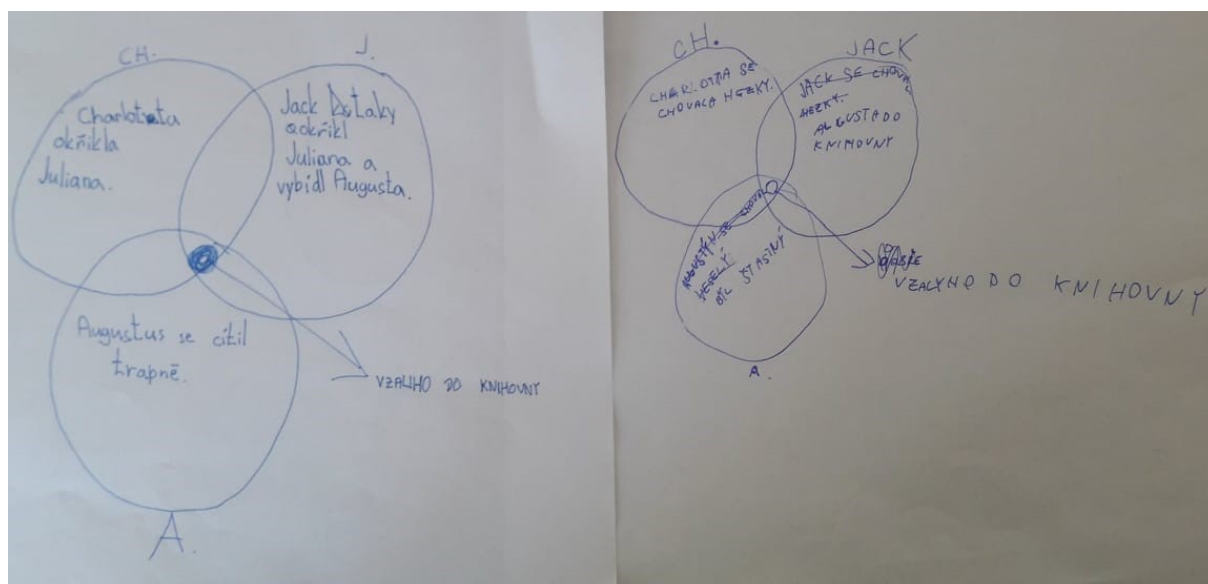 CH.
J.
Charlotta
okřikla
Juliana.
Jack taky
okřikl
Juliana a
vybídl Augusta.
Augustus se cítil
trapně.
VZALIHO DO KNIHOVNY
A.
CH.
JACK
CHARLOTTA SE
CHOVALA HEZKY.
JACK SE CHOVAL
HEZKY.
AUGUSTA DO
KNIHOVNY
AUGUSTÝN SE CHOVAL
BYL ŠŤASTNÝ
VZALY HO DO KNIHOVNY
A.